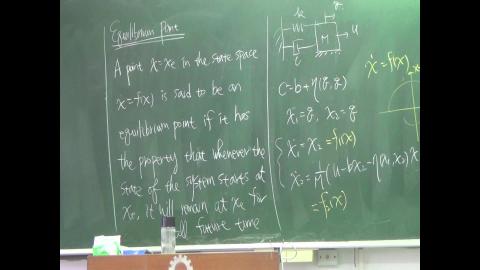 Equilibrium Point
A point x=xe in the state space
ẋ=f(x) is said to be an
equilibrium point if it has
the property that whenever the
state of the system starts at
xe, it will remain at xe for
all future time
k
M
u
c
C=b+η(q,q̇)
x₁=q, x₂=q̇
ẋ₁=x₂=f₁(x)
ẋ₂=1/M(u-bx₂-η(x₁,x₂)x
=f₂(x)
ẋ=f(x)